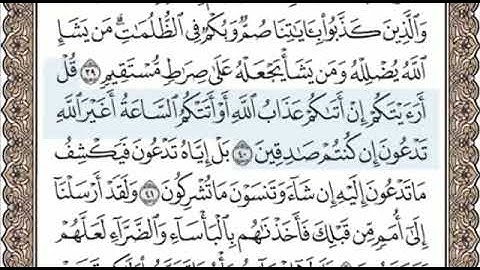 وَٱلَّذِينَ كَذَّبُوا۟ بِـَٔايَٰتِنَا صُمٌّ وَبُكْمٌ فِى ٱلظُّلُمَٰتِ مَن يَشَإِ
ٱللَّهُ يُضْلِلْهُ وَمَن يَشَأْ يَجْعَلْهُ عَلَىٰ صِرَٰطٍ مُّسْتَقِيمٍ ٣٩ قُلْ
أَرَءَيْتَكُمْ إِنْ أَتَىٰكُمْ عَذَابُ ٱللَّهِ أَوْ أَتَتْكُمُ ٱلسَّاعَةُ أَغَيْرَ ٱللَّهِ
تَدْعُونَ إِن كُنتُمْ صَٰدِقِينَ ٤٠ بَلْ إِيَّاهُ تَدْعُونَ فَيَكْشِفُ
مَا تَدْعُونَ إِلَيْهِ إِن شَآءَ وَتَنسَوْنَ مَا تُشْرِكُونَ ٤١ وَلَقَدْ أَرْسَلْنَآ
إِلَىٰٓ أُمَمٍ مِّن قَبْلِكَ فَأَخَذْنَٰهُم بِٱلْبَأْسَآءِ وَٱلضَّرَّآءِ لَعَلَّهُمْ